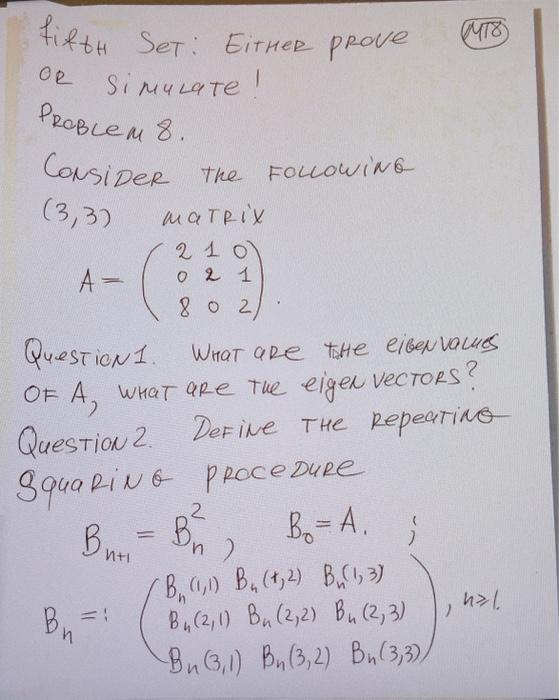 Fifth Set: Either prove
or Simulate!
MT8
Problem 8.
Consider the following
(3,3) matrix
A = ( 2 1 0
0 2 1
8 0 2 ).
Question 1. What are the eigenvalues
of A, what are the eigenvectors?
Question 2. Define the Repeating
Squaring procedure
B_{n+1} = B_n^2, B_0 = A. ;
B_n =: ( B_n(1,1) B_n(1,2) B_n(1,3)
B_n(2,1) B_n(2,2) B_n(2,3)
B_n(3,1) B_n(3,2) B_n(3,3) ), n≥1.